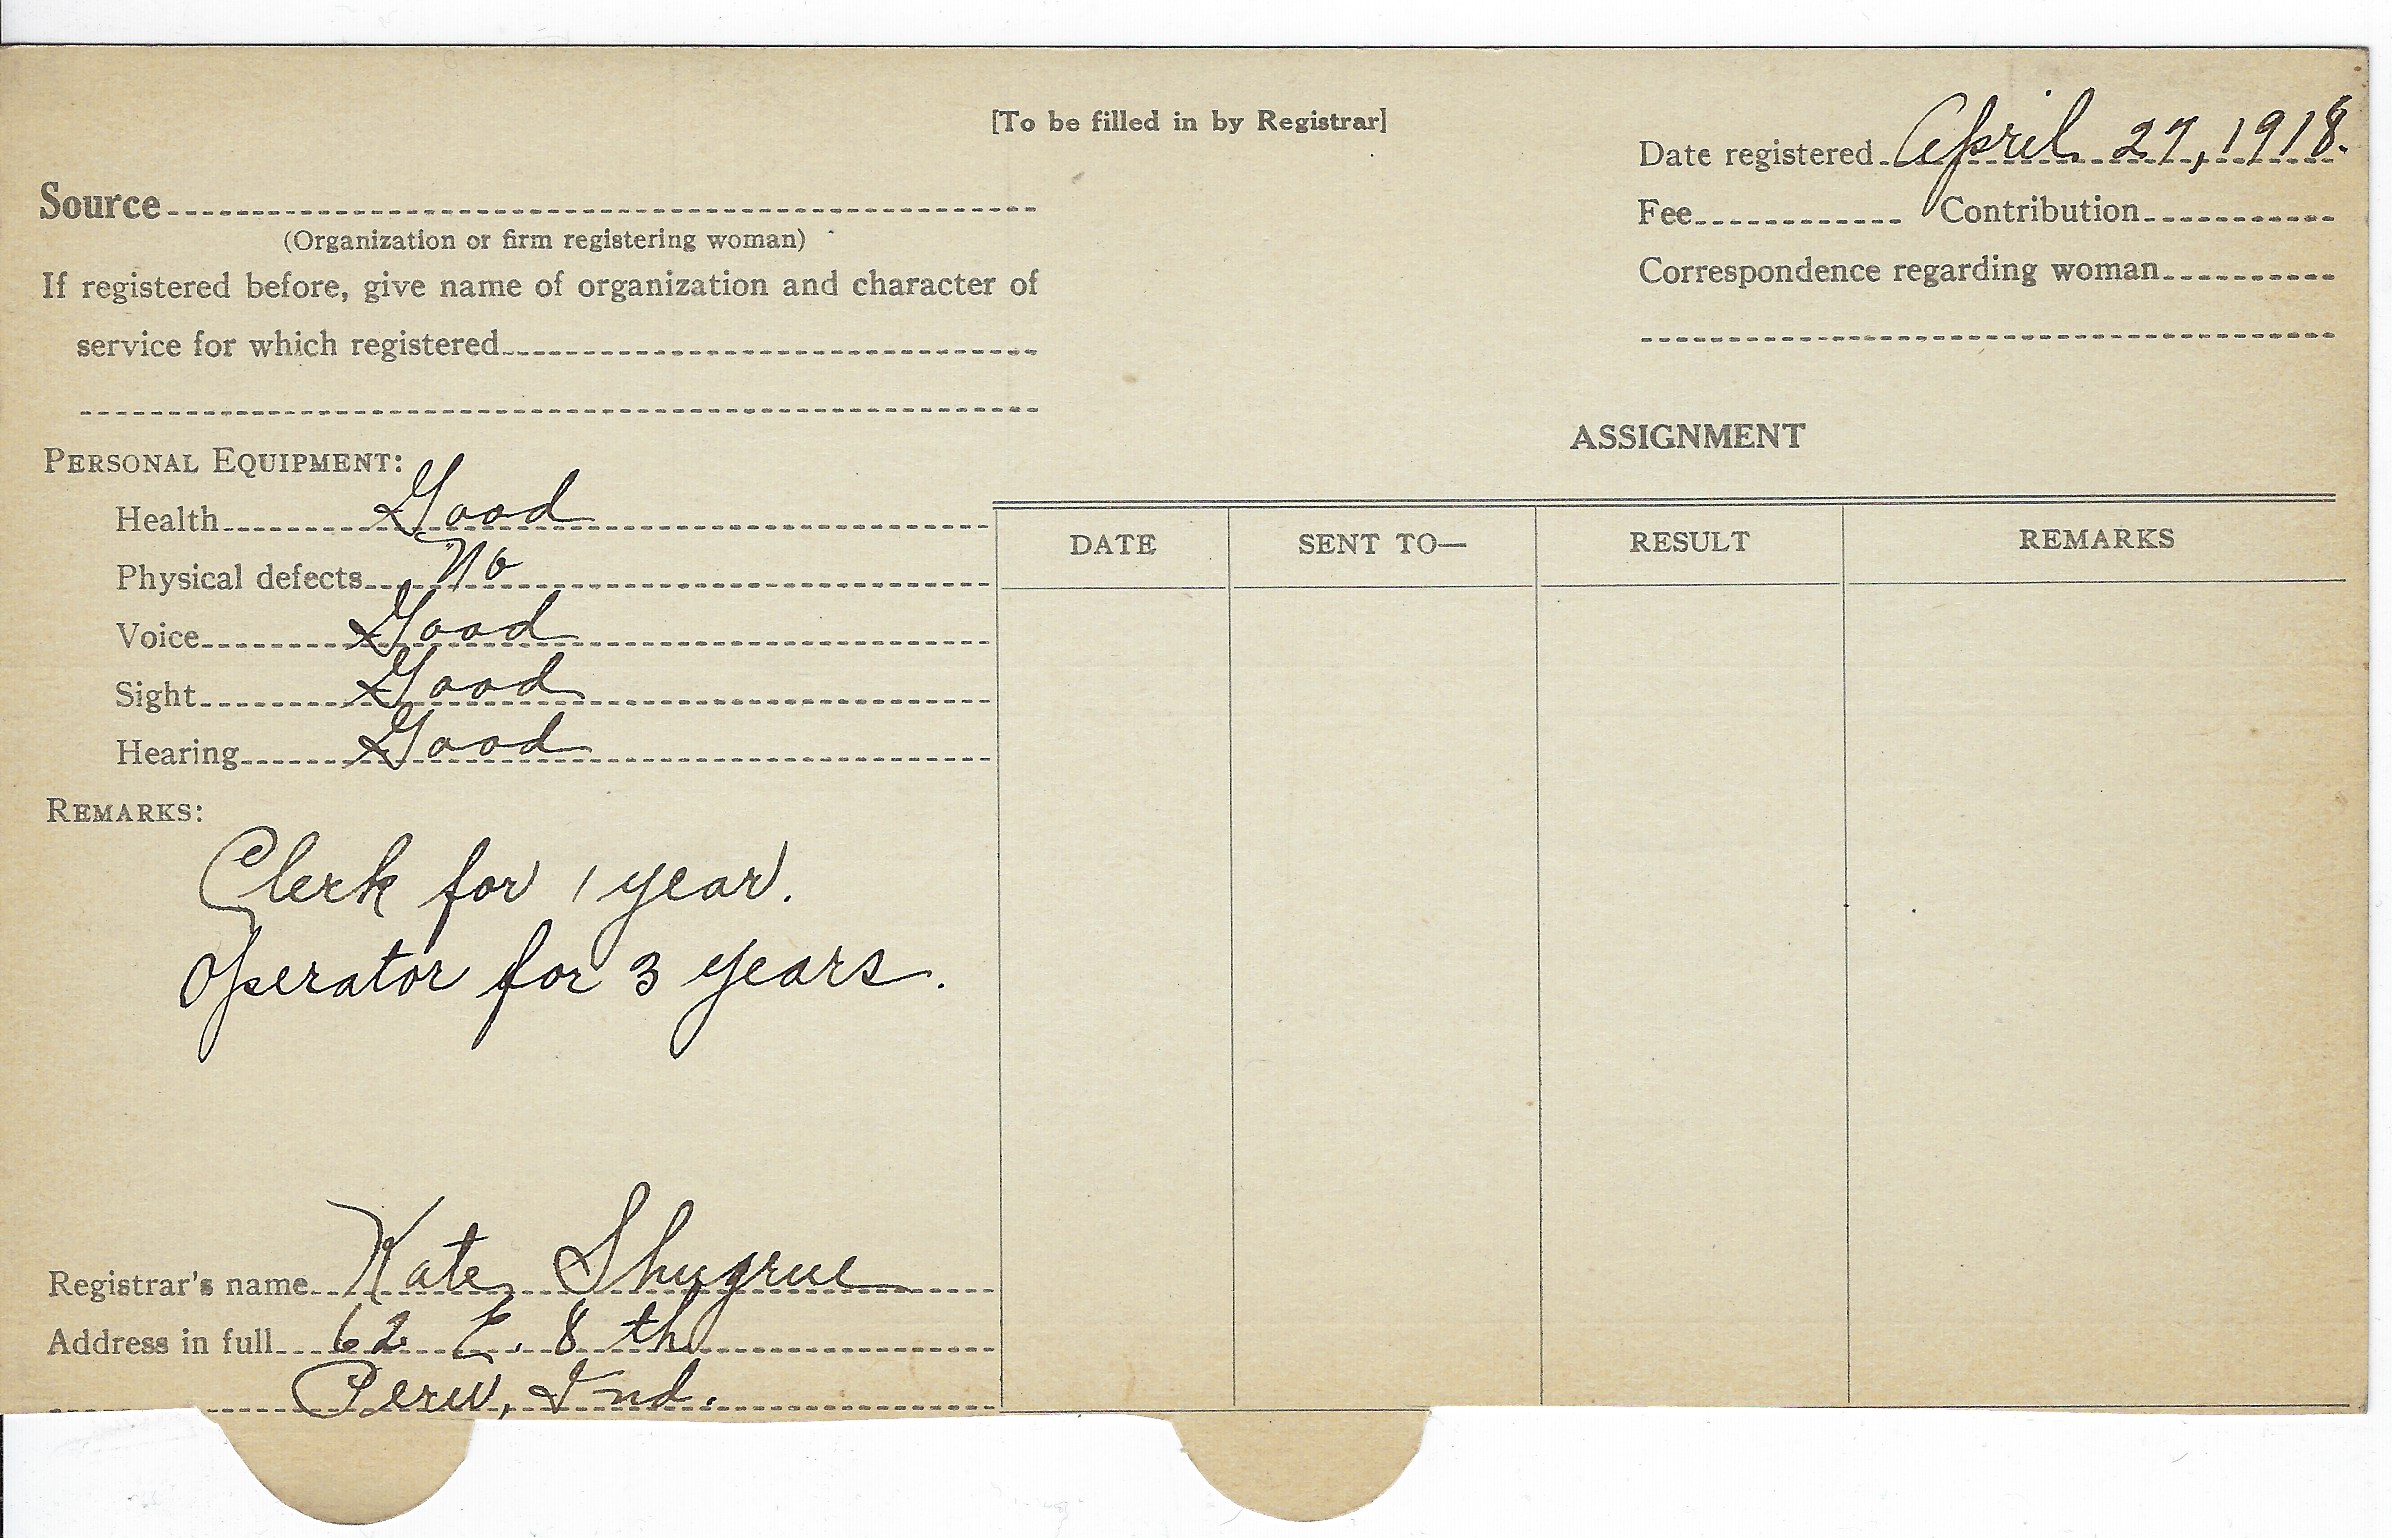 [To be filled in by Registrar]
Date registered April 27, 1918.
Source
Fee Contribution
(Organization or firm registering woman)
Correspondence regarding woman
If registered before, give name of organization and character of
service for which registered
ASSIGNMENT
PERSONAL EQUIPMENT:
Health Good
Physical defects No
Voice Good
Sight Good
Hearing Good
DATE SENT TO— RESULT REMARKS
REMARKS:
Clerk for 1 year.
Operator for 3 years.
Registrar's name Kate Shugrue
Address in full 62 E. 8th
Peru, Ind.